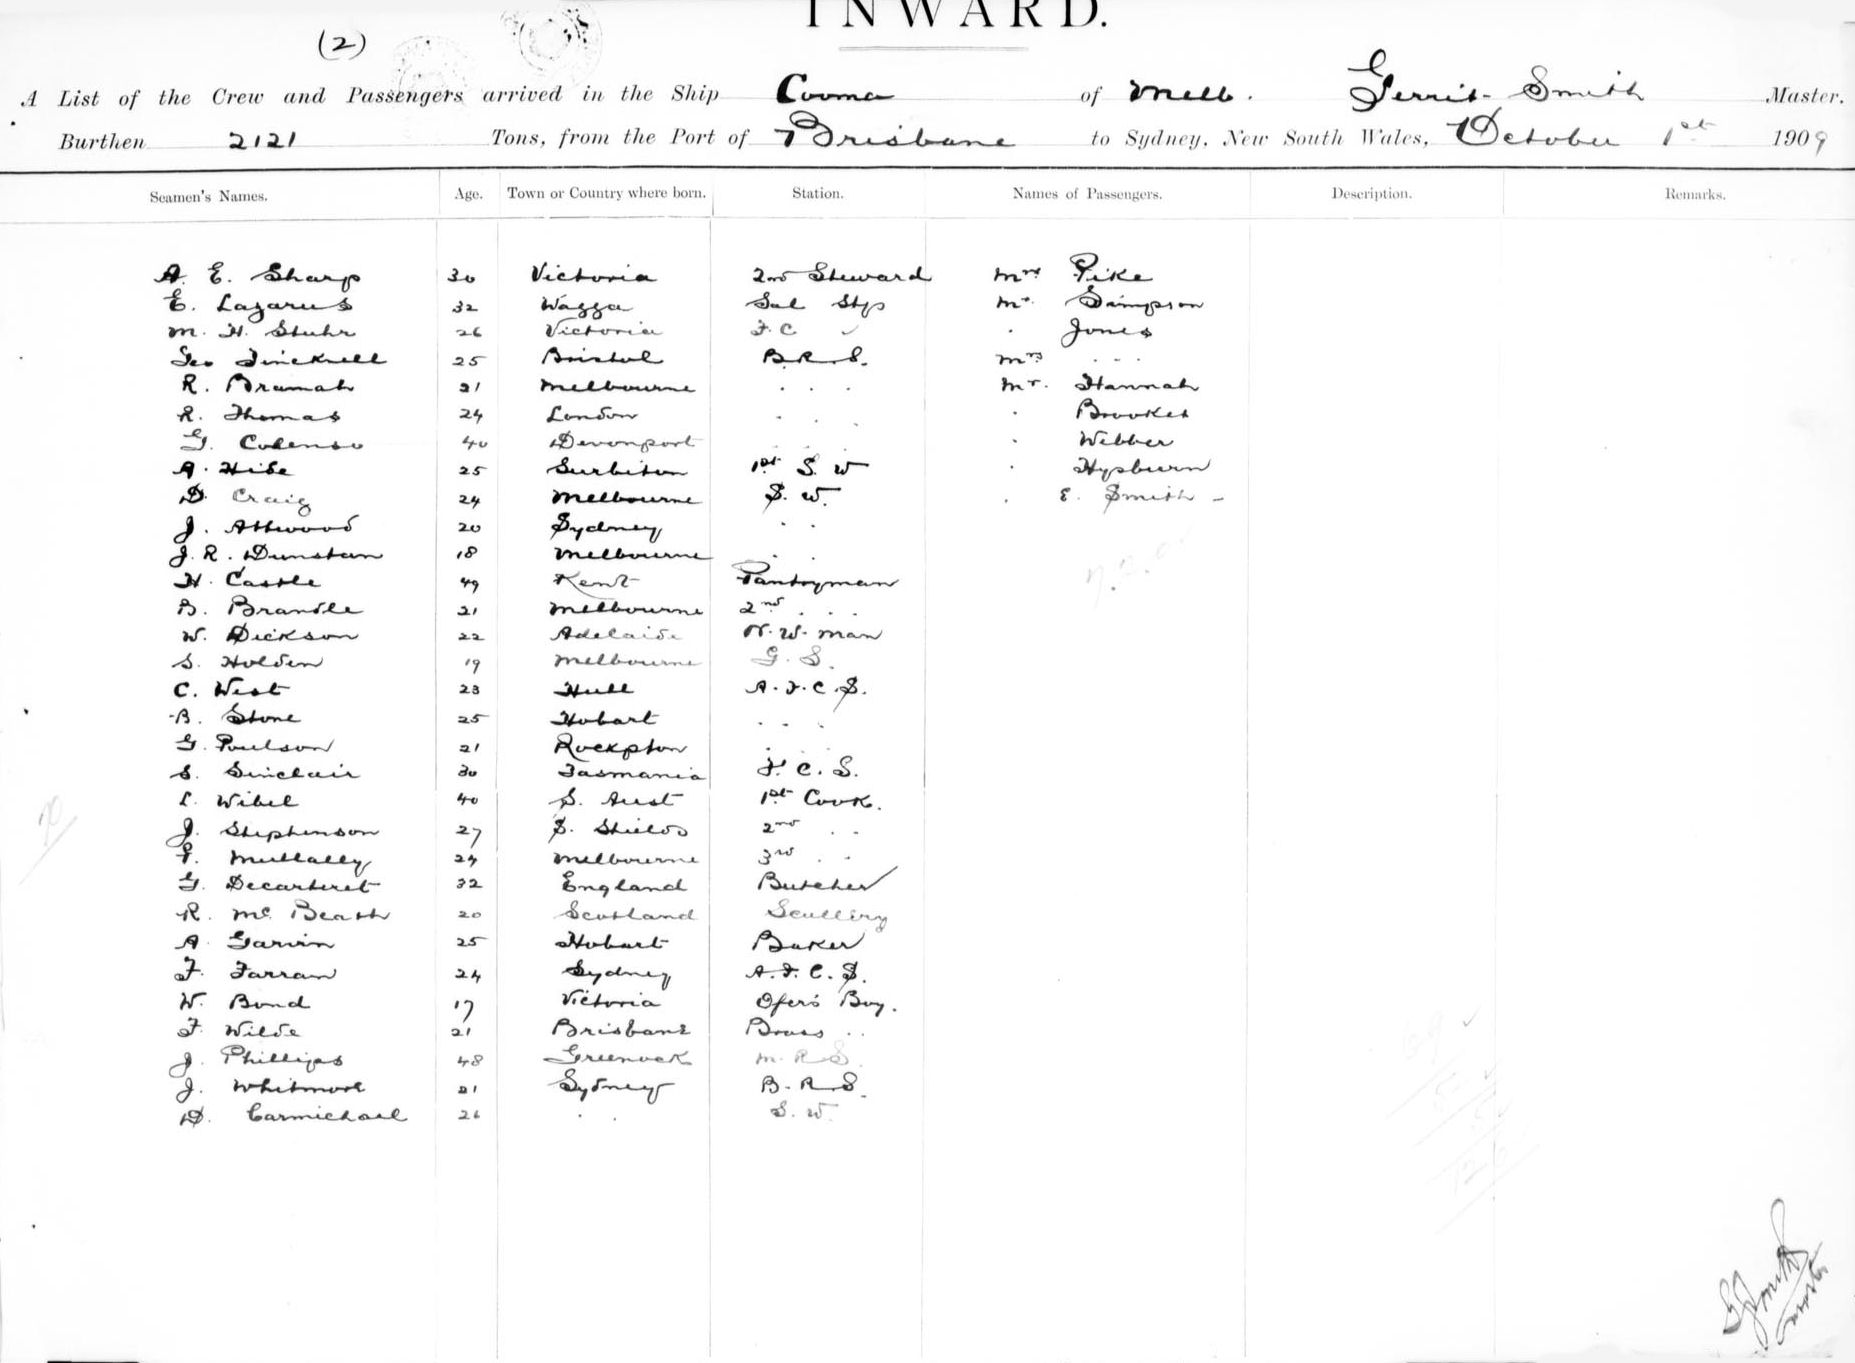 INWARD.
(2)
A List of the Crew and Passengers arrived in the Ship Cooma of Melb. Gerrit Smith Master.
Burthen 2121 Tons, from the Port of Brisbane to Sydney, New South Wales, October 1st 1909
Seamen's Names. Age. Town or Country where born. Station. Names of Passengers. Description. Remarks.
A. E. Sharp 30 Victoria 2nd Steward Mrs Pike
E. Lazarus 32 Wagga Sal Stp Mr. Simpson
M. H. Stuhr 26 Victoria F. C " Jones
Geo Tincknell 25 Bristol B. R. S. Mrs " "
R. Bramah 21 Melbourne " " " Mr. Hannah
R. Thomas 24 London " " " " Brookes
G. Colenso 40 Devonport " " " " Webber
A. Hibe 25 Surbiton 1st S. W " Hepburn
D. Craig 24 Melbourne S. W. " E. Smith -
J. Attwood 20 Sydney " "
J. R. Dunstan 18 Melbourne " "
H. Castle 49 Kent Pantryman
B. Brandle 21 Melbourne 2nd " "
W. Dickson 22 Adelaide N. W. Man
S. Holden 19 Melbourne G. S.
C. West 23 Hull A. F. C. S.
B. Stone 25 Hobart " " "
G. Poulson 21 Rockpton " " "
S. Sinclair 30 Tasmania F. C. S.
L. Wibel 40 S. Aust 1st Cook.
J. Stephenson 27 S. Shields 2nd " "
F. Mullally 24 Melbourne 3rd " "
G. Decarteret 32 England Butcher
R. McBeath 20 Scotland Scullery
A. Garvin 25 Hobart Baker
F. Farran 24 Sydney A. F. C. S.
W. Bond 17 Victoria Ofers Boy.
F. Wilde 21 Brisbane Brass " "
J. Phillips 48 Greenock M. R. S.
J. Whitmore 21 Sydney B. R. S.
D. Carmichael 26 " " S. W.
G Smith
Master